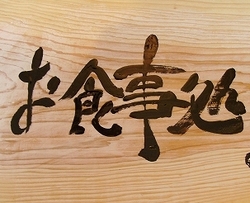 お食事処